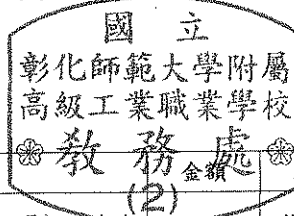 國立
彰化師範大學附屬
高級工業職業學校
教務處
金額
(2)